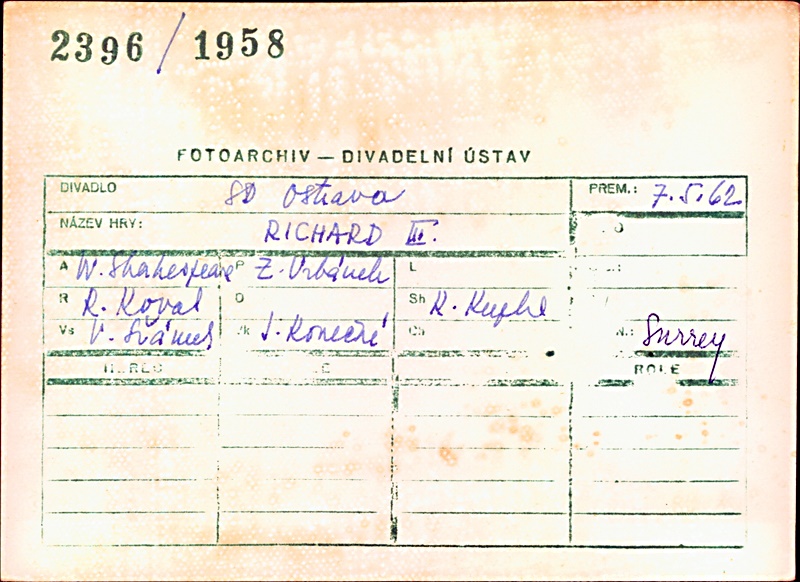 2396/1958
FOTOARCHIV — DIVADELNÍ ÚSTAV
DIVADLO SD Ostrava PREM.: 7.5.62
NÁZEV HRY: RICHARD III.
A W. Shakespeare P Z. Urbánek L
R R. Koval O Sh K. Kupka
Vs V. Šrámek Vk J. Konečná Ch Surrey
ROLE